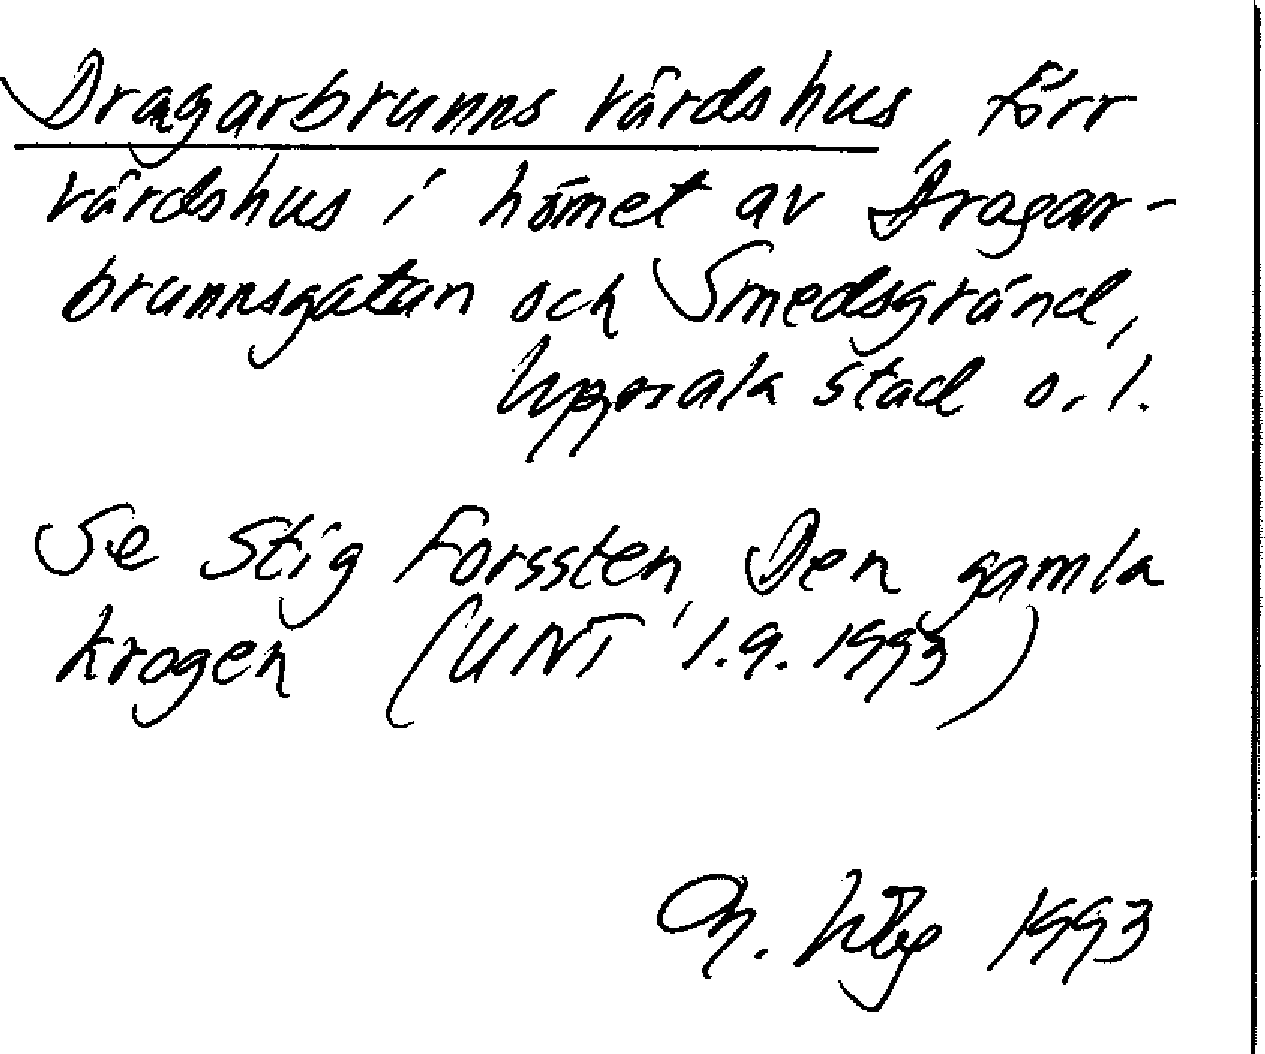 Dragarbrunns värdshus, förr
värdshus i hörnet av Dragar-
brunnsgatan och Smedsgränd,
Uppsala stad o. l.
Se Stig Forssten, Den gamla
krogen (UNT 1.9.1993)
1993